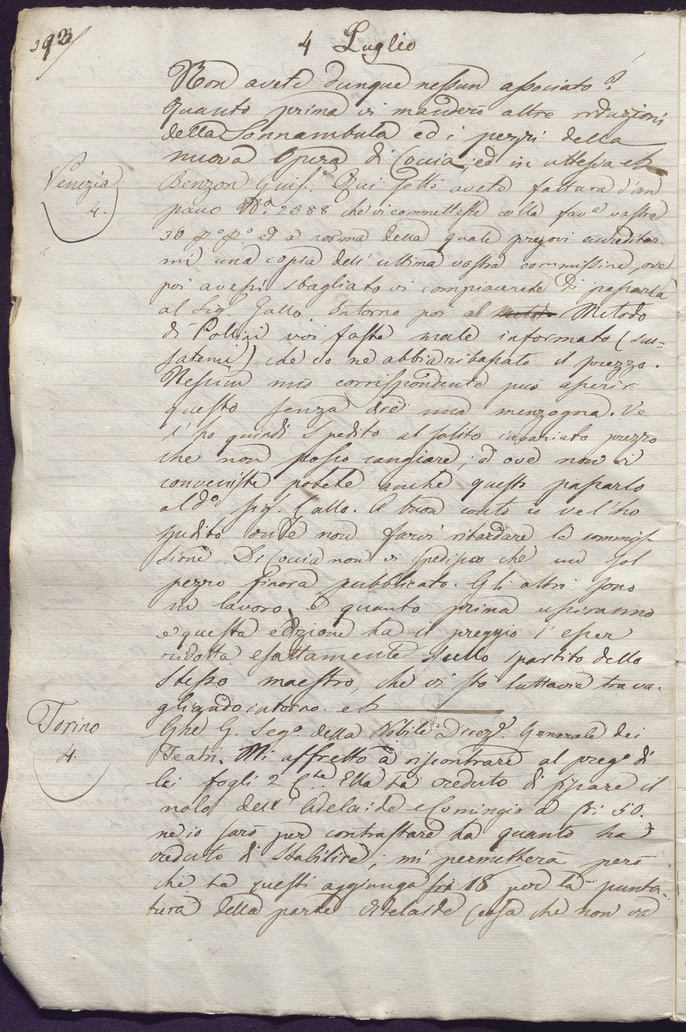 293
4 Luglio
Non avete dunque nessun associato?
Quanto prima vi manderò altre riduzioni
della Sonnambula ed i pezzi della
nuova Opera di Coccia, ed in attesa etc.
Venezia
4.
Benzon Qui sotto avete fattura d'un
pacco N.º 2388 che vi commetteste colla fav.ª vostra
30 p.º p.º ed a norma della quale pregovi accreditar-
mi una copia dell'ultima vostra commissione, ove
poi avessi sbagliato vi compiacerete di passarla
al Sig. Gallo. Intorno poi al Metodo
di Pollini voi foste male informato (scu-
satemi) che io ne abbia ribassato il prezzo.
Nessun mio corrispondente può asserir
questo senza dire una menzogna. Ve
l'ho quindi spedito al solito prezzo
che non posso cangiare, ed ove non vi
convenisse potete anche questo passarlo
al d.º Sig. Gallo. A buon conto io ve l'ho
spedito onde non farvi ritardare la commis-
sione. Di Coccia non vi spedisco che un sol
pezzo finora pubblicato. Gli altri sono
in lavoro, e quanto prima usciranno
e questa edizione ha il preggio d'esser
ridotta esattamente sullo spartito dello
stesso maestro, che vi sta tuttavia trava-
gliando intorno. etc.
Torino
4.
G. Seg.º della Nobile Direz.e Generale dei
Teatri. Mi affretto a riscontrare al preg.º di
lei fogli 2 C.te Ella ha creduto di fissare il
nolo dell'Adelaide e Comingio a 50.
nè io sarò per contrastare ha quanto ha
creduto di stabilire; mi permetterà però
che ha questi aggiunga 18 per la punta-
tura della parte Adelaide (cosa che non va